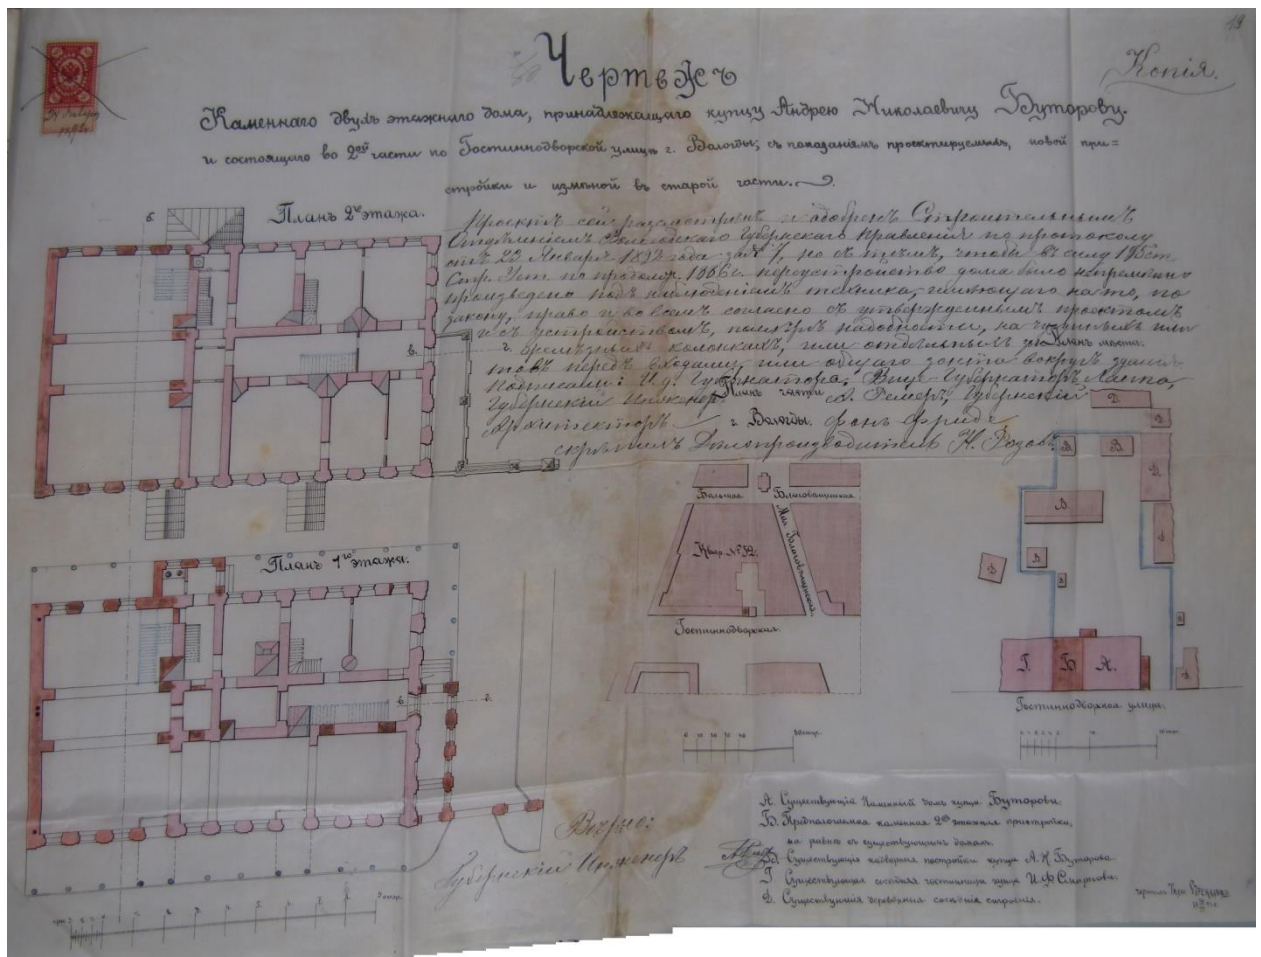 19
Копія.
Чертежъ
Каменнаго двухъ этажнаго дома, принадлежащаго купцу Андрею Николаевичу Буторову.
и состоящаго во 2ой части по Гостиннодворской улицѣ г. Вологды, съ показаніемъ проэктируемыхъ, новой при=
стройки и измѣной въ старой части.
Планъ 2го этажа.
Проэктъ сей разсмотрѣнъ и одобренъ Строительнымъ
Отдѣленіемъ Вологодскаго Губернскаго Правленія по протоколу
отъ 23 Января 1892 года за №, но съ тѣмъ, чтобы въ силу 195 ст.
Стр. Уст. по продолж. 1886 г. переустройство дома было непремѣнно
произведено подъ наблюденіемъ техника, имѣющаго на то, по
закону, право и во всемъ согласно съ утвержденнымъ проэктомъ
и съ устройствомъ, на чугунныхъ или
колонкахъ, или отдѣльныхъ
передъ входами, или общаго зонта вокругъ зданія.
Подписали: И. д. Губернатора, Вице-Губернаторъ Лаппо,
Губернскій Инженеръ А. Ремеръ, Губернскій
Архитекторъ фонъ Фриде
скрѣпилъ Дѣлопроизводитель Н. Розовъ.
в.
г.
б
Планъ мѣста.
Планъ части
г. Вологды.
Большая Благовѣщенская
Мал. Благовѣщенская
Квар. № 52.
Гостиннодворская.
Д.
В.
В.
В.
Д.
В.
В.
Д.
Г. Б А.
Гостиннодворская улица.
Планъ 1го этажа.
в
г.
Вѣрно:
Губернскій Инженеръ
А. Существующій каменный домъ купца Буторова.
Б. Предполагаемая каменная 2хъ этажная пристройка,
на равнѣ съ существующимъ домомъ.
В. Существующія надворныя постройки купца А. Н. Буторова.
Г. Существующая сосѣдняя гостинница купца И. Ф.
Д. Существующія деревянныя сосѣднія строенія.